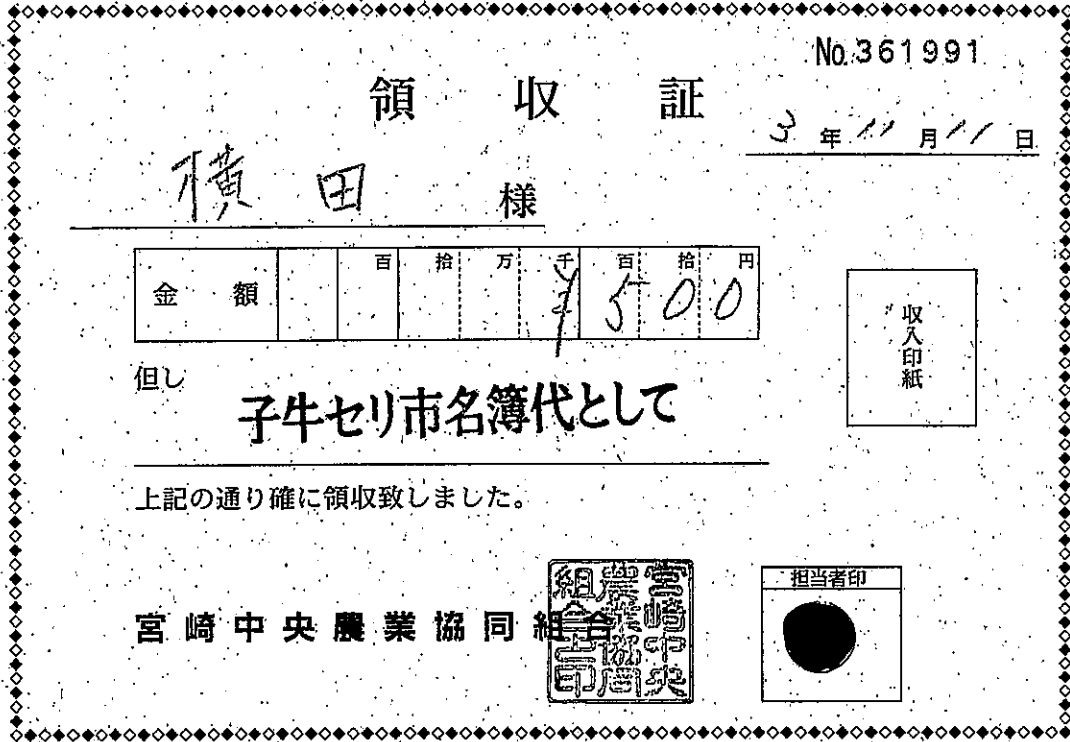 No.361991
領収証
3年11月11日
横田 様
金額 百拾万千百拾円
¥500
収入印紙
但し
子牛セリ市名簿代として
上記の通り確に領収致しました。
宮崎中央農業協同組合
宮崎中央農業協同組合之印
担当者印